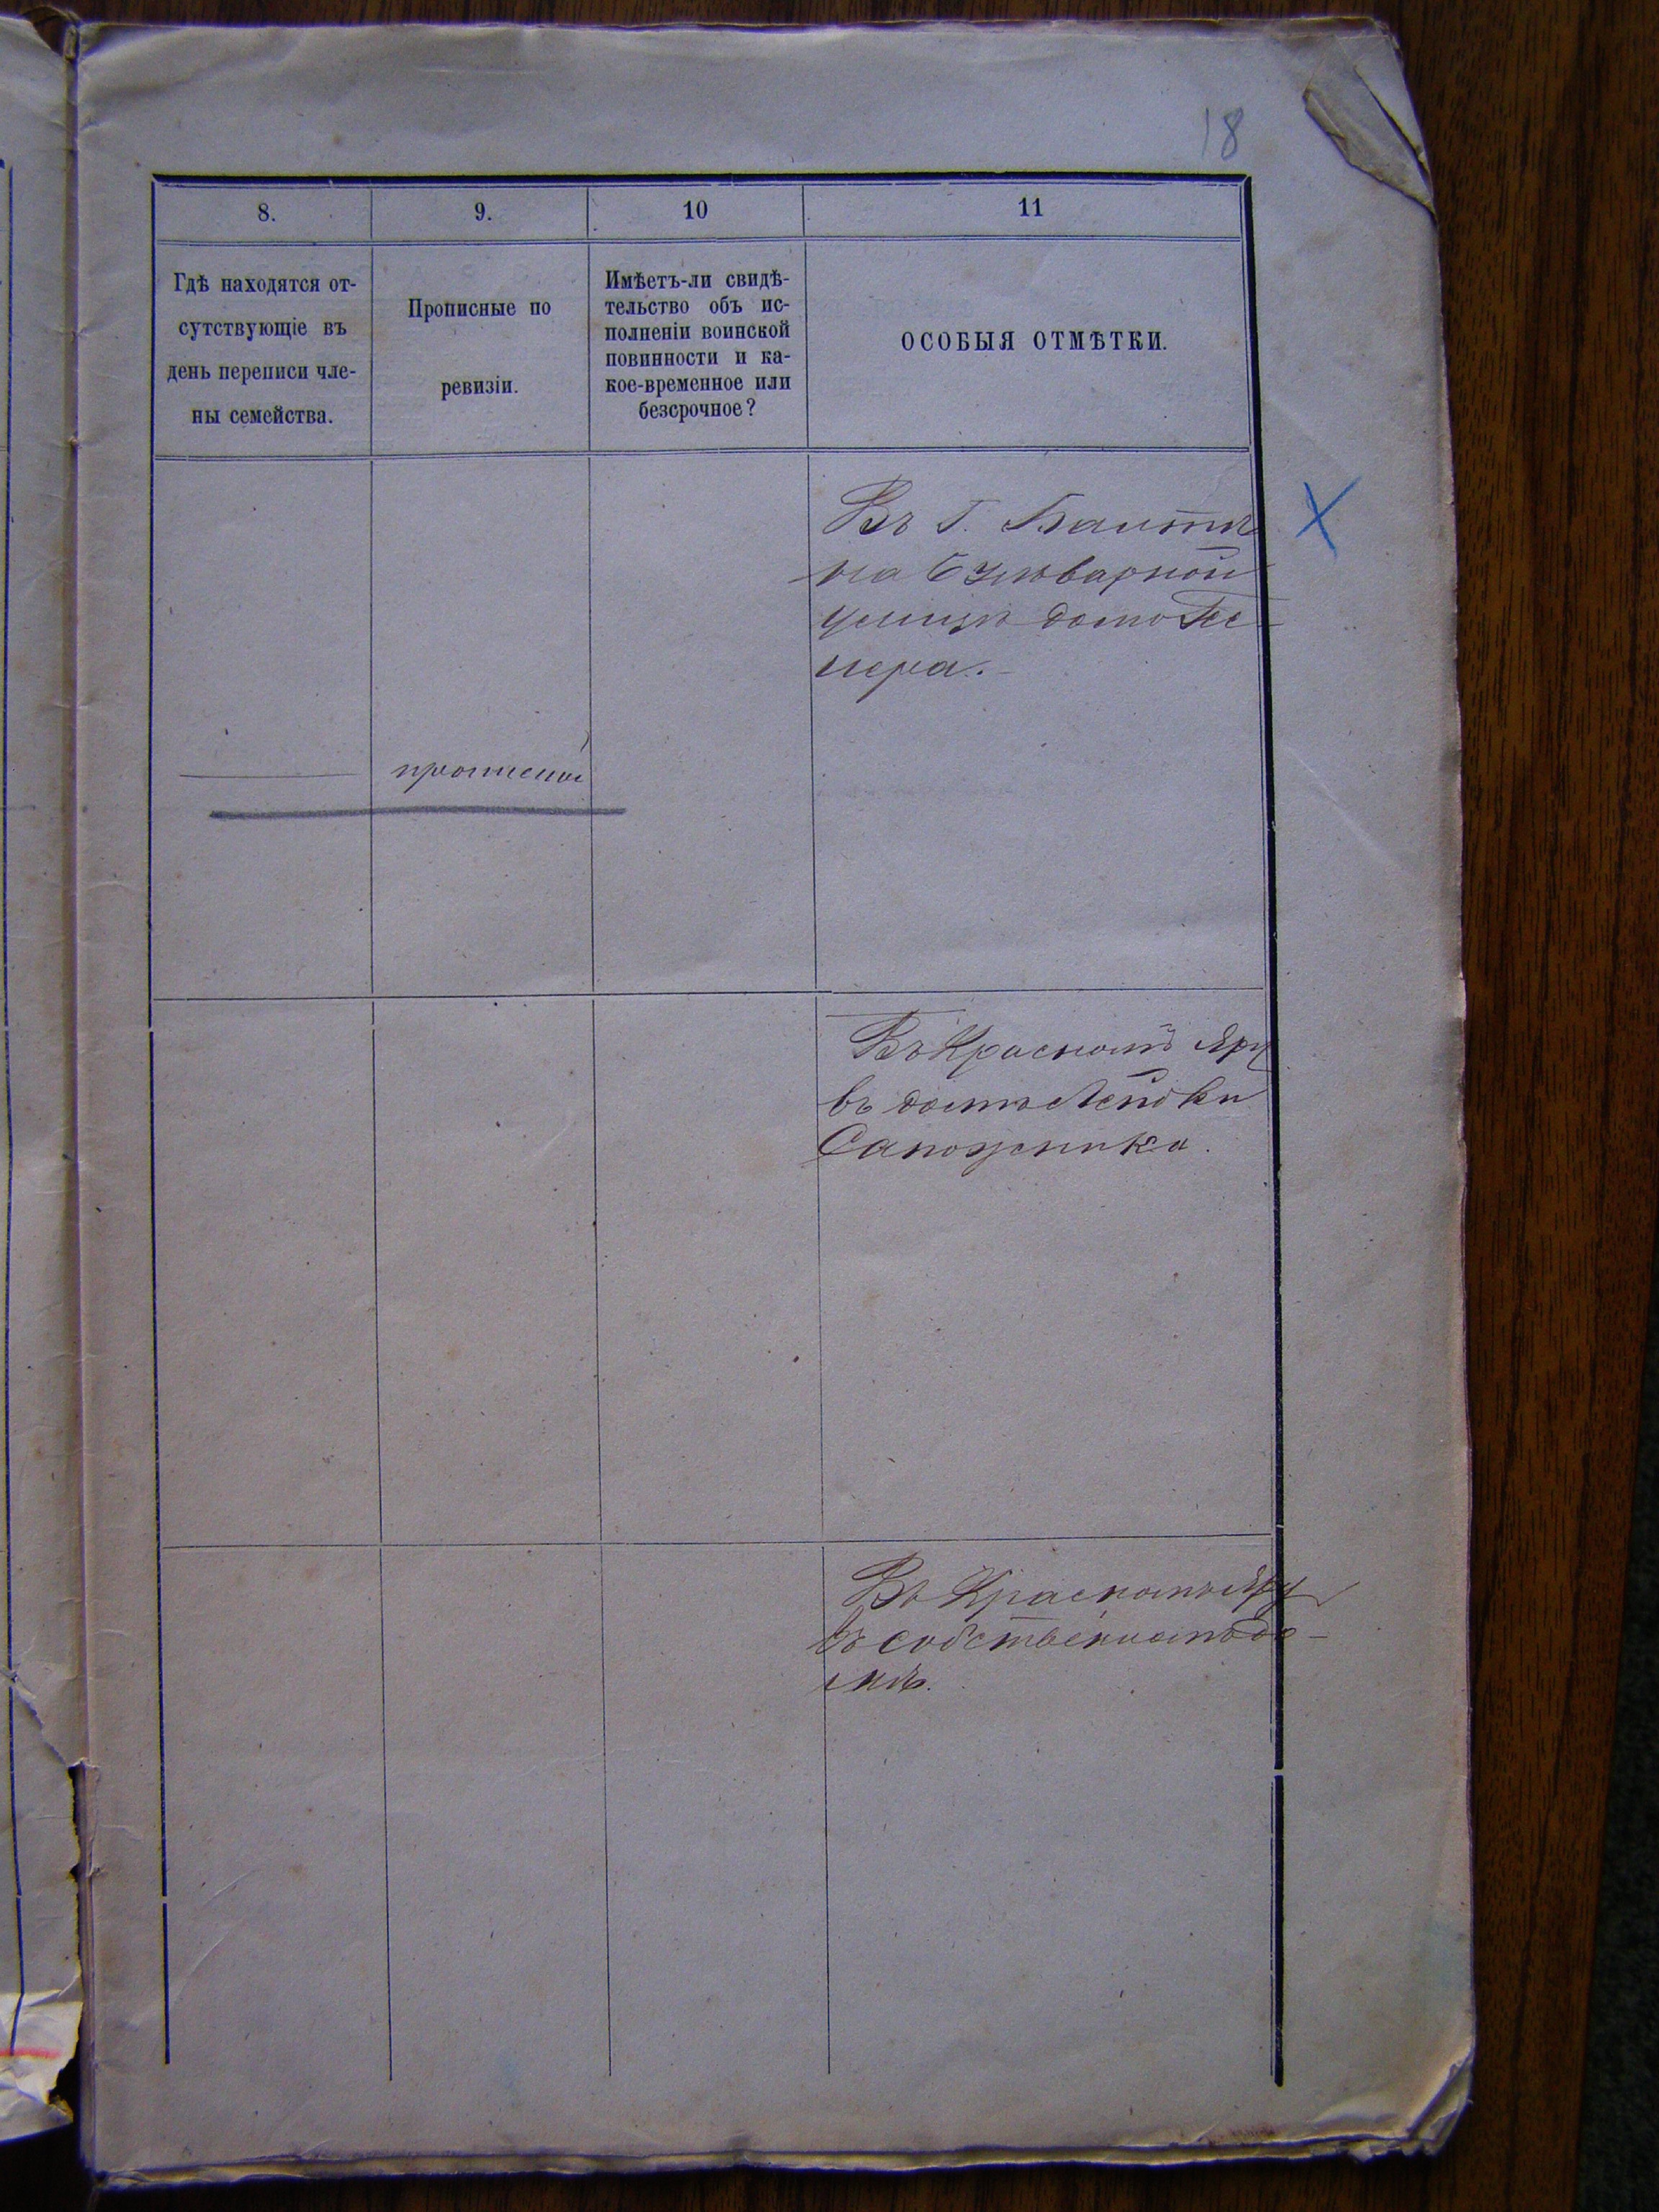 18
8.
9.
10
11
Гдѣ находятся от-
сутствующіе въ
день переписи чле-
ны семейства.
Прописные по
ревизіи.
Имѣетъ-ли свидѣ-
тельство объ ис-
полненіи воинской
повинности и ка-
кое-временное или
безсрочное?
ОСОБЫЯ ОТМѢТКИ.
Въ Г. Балтѣ
на
улицѣ
Въ Красномъ Яру
въ домѣ Лейбки
Сапожника.
Въ Красномъ Яру
въ собственномъ до-
мѣ.